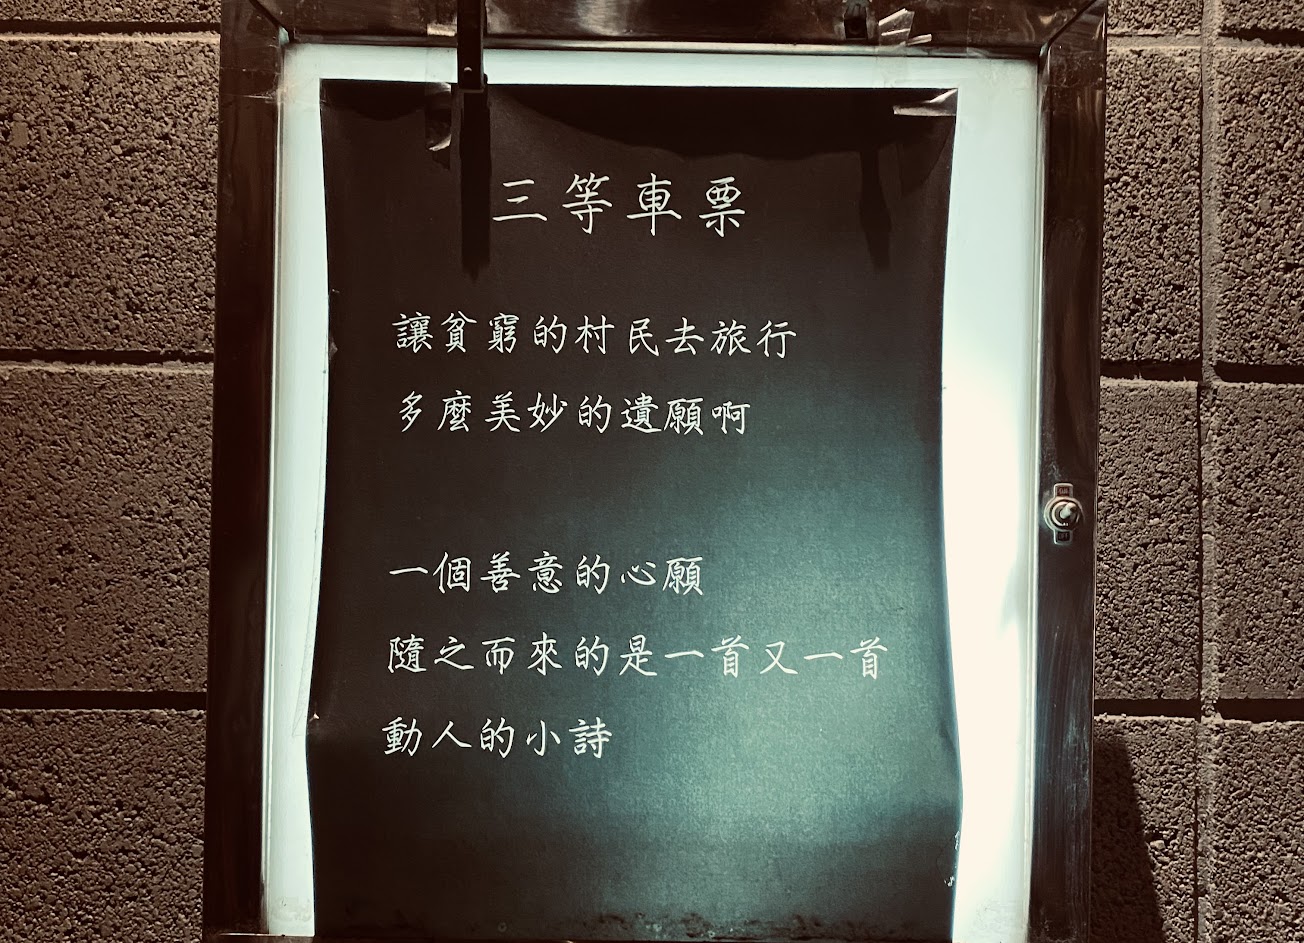 三等車票
讓貧窮的村民去旅行
多麼美妙的遺願啊
一個善意的心願
隨之而來的是一首又一首
動人的小詩